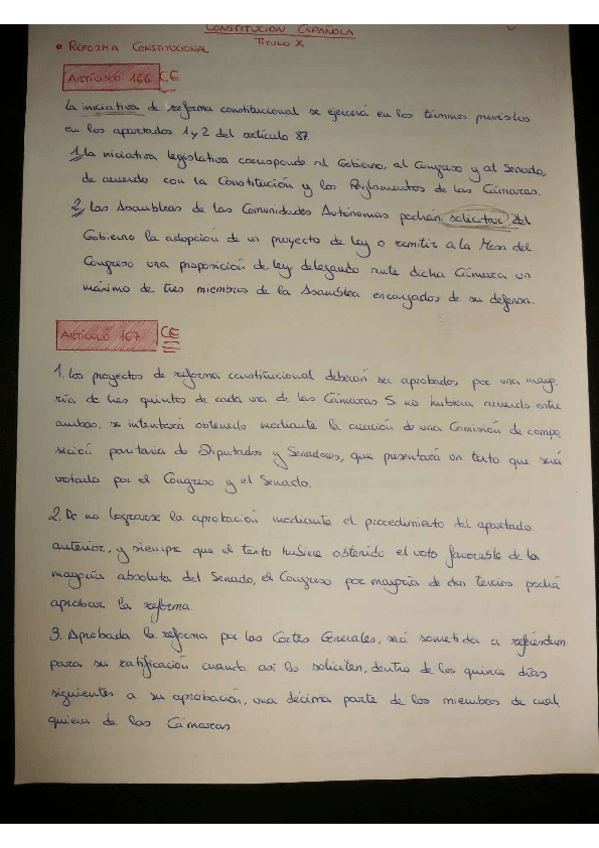 CONSTITUCIÓN ESPAÑOLA
TÍTULO X
• REFORMA CONSTITUCIONAL
ARTÍCULO 166 CE
La iniciativa de reforma constitucional se ejercerá en los términos previstos
en los apartados 1 y 2 del artículo 87.
1. La iniciativa legislativa corresponde al Gobierno, al Congreso y al Senado,
de acuerdo con la Constitución y los Reglamentos de las Cámaras.
2. Las Asambleas de las Comunidades Autónomas podrán solicitar del
Gobierno la adopción de un proyecto de ley o remitir a la Mesa del
Congreso una proposición de ley delegando ante dicha Cámara un
máximo de tres miembros de la Asamblea encargados de su defensa.
ARTÍCULO 167 CE
1. Los proyectos de reforma constitucional deberán ser aprobados, por una mayo
ría de tres quintos de cada una de las Cámaras S no hubiera acuerdo entre
ambas, se intentará obtenerlo mediante la creación de una Comisión de compo
sición paritaria de Diputados y Senadores, que presentará un texto que será
votado por el Congreso y el Senado.
2. De no lograrse la aprobación mediante el procedimiento del apartado
anterior, y siempre que el texto hubiere obtenido el voto favorable de la
mayoría absoluta del Senado, el Congreso por mayoría de dos tercios podrá
aprobar la reforma.
3. Aprobada la reforma por las Cortes Generales, será sometida a referéndum
para su ratificación cuando así lo soliciten, dentro de los quince días
siguientes a su aprobación, una décima parte de los miembros de cual
quiera de las Cámaras